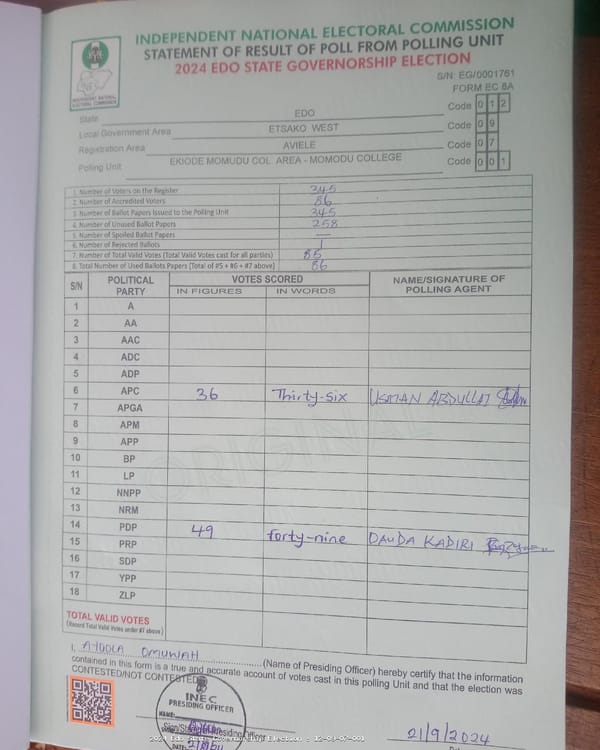 INDEPENDENT NATIONAL ELECTORAL COMMISSION
STATEMENT OF RESULT OF POLL FROM POLLING UNIT
2024 EDO STATE GOVERNORSHIP ELECTION
INDEPENDENT NATIONAL ELECTORAL COMMISSION
S/N: EG/0001761
FORM EC 8A
State EDO Code 0 1 2
Local Government Area ETSAKO WEST Code 0 9
Registration Area AVIELE Code 0 7
Polling Unit EKIODE MOMUDU COL. AREA - MOMODU COLLEGE Code 0 0 1
1. Number of Voters on the Register 345
2. Number of Accredited Voters 86
3. Number of Ballot Papers Issued to the Polling Unit 345
4. Number of Unused Ballot Papers 258
5. Number of Spoiled Ballot Papers —
6. Number of Rejected Ballots 1
7. Number of Total Valid Votes (Total Valid Votes cast for all parties) 85
8. Total Number of Used Ballots Papers (Total of #5 + #6 + #7 above) 86
S/N POLITICAL PARTY VOTES SCORED NAME/SIGNATURE OF POLLING AGENT
IN FIGURES IN WORDS
1 A
2 AA
3 AAC
4 ADC
5 ADP
6 APC 36 Thirty-six USMAN ABDULLAI
7 APGA
8 APM
9 APP
10 BP
11 LP
12 NNPP
13 NRM
14 PDP 49 forty-nine DAUDA KADIRI
15 PRP
16 SDP
17 YPP
18 ZLP
ORIGINAL
TOTAL VALID VOTES
(Record Total Valid Votes under #7 above)
I, OMUWAH (Name of Presiding Officer) hereby certify that the information
contained in this form is a true and accurate account of votes cast in this polling Unit and that the election was
CONTESTED/NOT CONTESTED
INEC
PRESIDING OFFICER
NAME:
Presiding Officer
DATE:
21/9/2024
2024 Edo State Governorship Election : 12-09-07-001